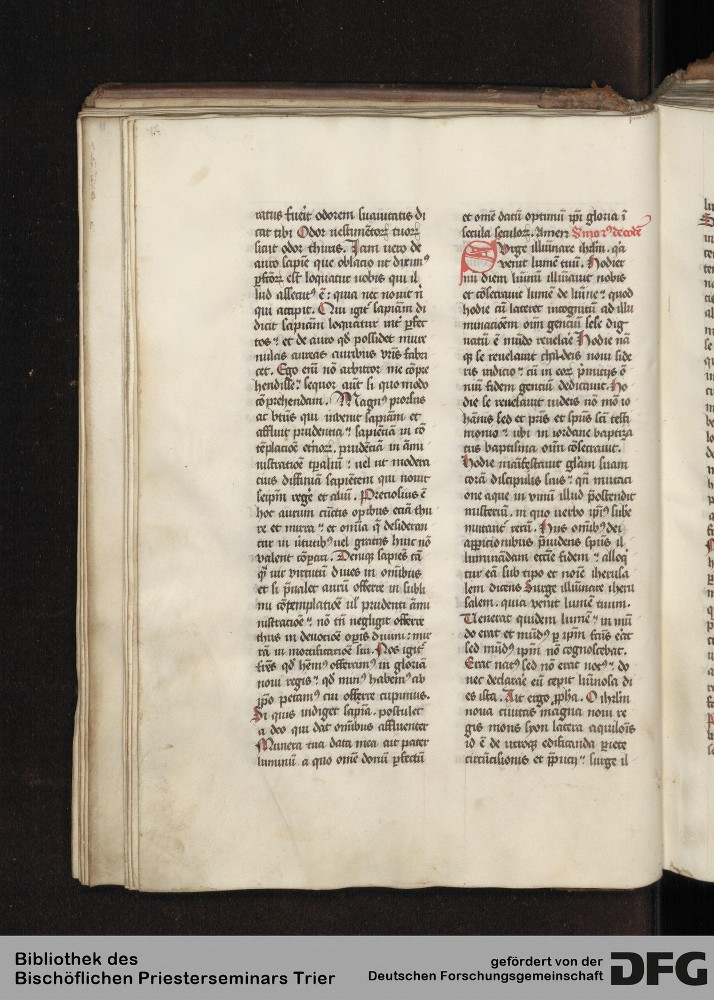 ratus fuerit odorem suauitatis di
cat tibi Odor uestimentoꝝ tuoꝝ
sicut odor thuris. Iam uero de
auro sapīe que oblacio ut diximꝰ
ꝑfctōꝝ est loquatur uobis qui il
lud assecutꝰ ē: quia nec nouit nͥ
qui accipit. Qui igitͬ sapīam di
dicit sapīam loquatur int̾ ꝑfec
tos et de auro qd̾ possidet mure
nulas aureas auribus vr̄is fabri
cet. Ego enī nō arbitror me cōpre
hendisse. sequor aūt si quo modo
cōprehendam. Magnꝰ prorsus
ac bt̄us qui inuenit sapīam et
affluit prudentia sapiēcia in cō
tēplacōe et̾noꝝ. prudēcia in āmi
nistracōe tꝑaliū uel ut modera
cius diffinīā sapiētem qui nouit
seipm̄ reg̾e et aliū. Preciosius ē
hoc aurum cūctis opibus eciā thu
re et mirra et om̄ia q̄ desideran
tur in ūtutibꝰ uel graciis huic nō
valent cōpari. Deniqꝫ sapiēs tā
qͣ uir virtutū diues in om̄ibus
et si p̄ualet aurū offerre in subli
mi cōtemplacōe ul̾ prudenti āmi
nistracōe nō tn̄ negligit offerre
thus in deuocōe op̄is diuini: mir
rā in mortificacōe sui. Nos igitͬ
frēs qd̾ hēmꝰ offeramꝰ in gloriā
noui regis qd̾ minꝰ habemꝰ ab
ip̄o petamꝰ cui offerre cupimus.
Si quis indiget sapīa. postulet
a deo qui dat om̄ibus affluenter
Munera tua data mea ait pater
luminū a quo om̄e donū ꝑfectū
et om̄e datū optimū ip̄i gloria ī
secula seculoꝝ. Amen Smo
Surge illūinare ihrl̄m. qͥa
venit lumē tuū. Hodier
nū diem lūinū illūiauit nobis
et cōsecrauit lumē de lūine quod
hodie cū lateret incognitū ad illu
minacōem om̄ genciū sese dig
natū ē mūdo reuelare Hodie nā
qꝫ se reuelauit chaldeis noui side
ris indicio cū in eoꝝ pͥmiciis ō
niū fidem genciū dedicauit. Ho
die se reuelauit iudeis nō mō io
hānis sed et pr̄is et spūs sc̄i testi
monio ubi in iordane baptiza
tus baptisma om̄ cōsecrauit.
Hodie manīfestauit gl̄iam suam
corā discipulis suis qn̄ mutaci
one aque in vinū illud p̄ostendit
misteriū. in quo uerbo ip̄iꝰ subē
mutant̾ rerū. Hiis om̄ibꝰ dei
appicionibus p̄uidens spūs il
luminādam ecc̄ie fidem alloqͥ
tur eā sub tipo et noīe iherusa
lem dicens Surge illūinare iheru
salem. quia venit lumē tuum.
Venerat quidem lumē in mū
do erat et mūdꝰ ꝑ ip̄m fc̄us erat
sed mūdꝰ ip̄m nō cognoscebat.
Erat natꝰ sed nō erat notꝰ do
nec declarare eū cepit lūinosa di
es ista. Ait ergo ꝓph̄a. O ihrl̄m
noua ciuitas magna noui re
gis mons syon latera aquilōis
id ē de utroqꝫ edificanda ꝑiete
circūcisionis et p̄puciī surge il
Bibliothek des
Bischöflichen Priesterseminars Trier
gefördert von der
Deutschen Forschungsgemeinschaft DFG